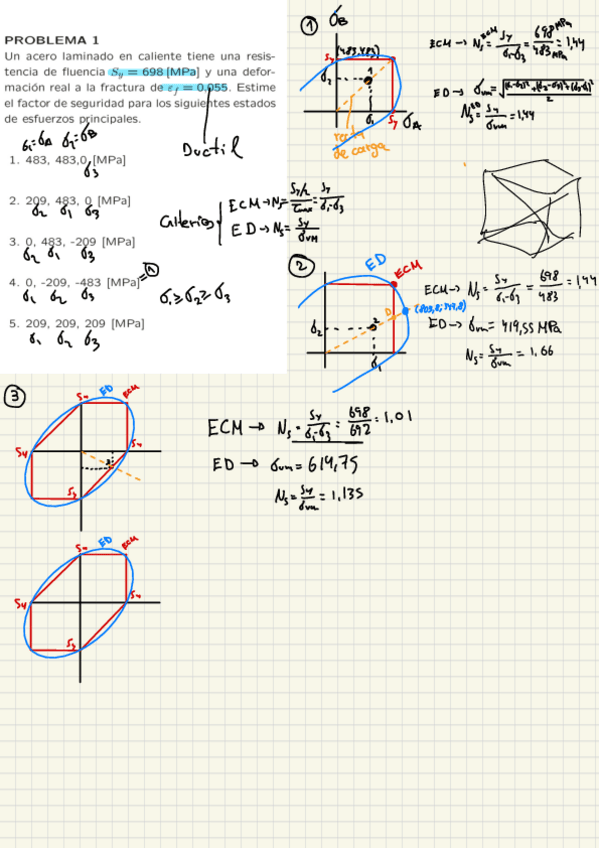 PROBLEMA 1
Un acero laminado en caliente tiene una resis-
tencia de fluencia Sy = 698 [MPa] y una defor-
mación real a la fractura de εf = 0,055. Estime
el factor de seguridad para los siguientes estados
de esfuerzos principales.
σ1=σA σ2=σB
1. 483, 483,0 [MPa]
σ3
Ductil
2. 209, 483, 0 [MPa]
σ2 σ1 σ3
3. 0, 483, -209 [MPa]
σ2 σ1 σ3
4. 0, -209, -483 [MPa]
σ1 σ2 σ3
5. 209, 209, 209 [MPa]
σ1 σ2 σ3
Criterios
ECM → Ns = (Sy/2)/τmax = Sy/(σ1-σ3)
ED → Ns = Sy/σVM
σ1 ≥ σ2 ≥ σ3
1
σB
(483,483)
Sy
σ2
σ1
Sy
σA
recta
de carga
ECM → Ns ECM = Sy/(σ1-σ3) = 698 MPa/483 MPa = 1,44
ED → σvm = √(((σ1-σ2)²+(σ2-σ3)²+(σ3-σ1)²)/2)
Ns ED = Sy/σvm = 1,44
2
ED
ECM
σ2
σ1
ECM → Ns = Sy/(σ1-σ3) = 698/483 = 1,44
ED → σvm = 419,55 MPa
Ns = Sy/σvm = 1,66
3
Sy
ED
ECM
Sy
Sy
Sy
ECM → Ns = Sy/(σ1-σ3) = 698/692 = 1,01
ED → σvm = 614,75
Ns = Sy/σvm = 1,135
Sy
ED
ECM
Sy
Sy
Sy